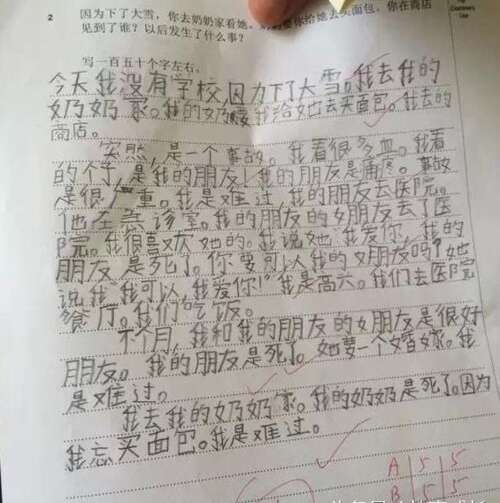 2 因为下了大雪，你去奶奶家看她。奶奶要你给她去买面包。你在商店
见到了谁？以后发生了什么事？
写一百五十个字左右。
今天我没有学校，因为下了大雪。我去我的
奶奶家。我的奶奶要我给她去买面包。我去的
商店。
突然，是一个事故。我看很多血。我看
的个丁，是我的朋友！我的朋友是痛疼。事故
是很严重。我是难过，我的朋友去医院。
他在急诊室。我的朋友的女朋友去了医
院。我很喜欢她的。我说她“我爱你，我的
朋友是死了。你要可以我的女朋友吗？”她
说我“我可以，我爱你！”我是高六。我们去医院
餐厅。我们吃饭。
个月，我和我的朋友的女朋友是很好
朋友。我的朋友是死了。她要一个婚嫁。我
是难过。
我去我的奶奶家。我的奶奶是死了。因为
我忘买面包。我是难过。
A 5 5
B 5 5